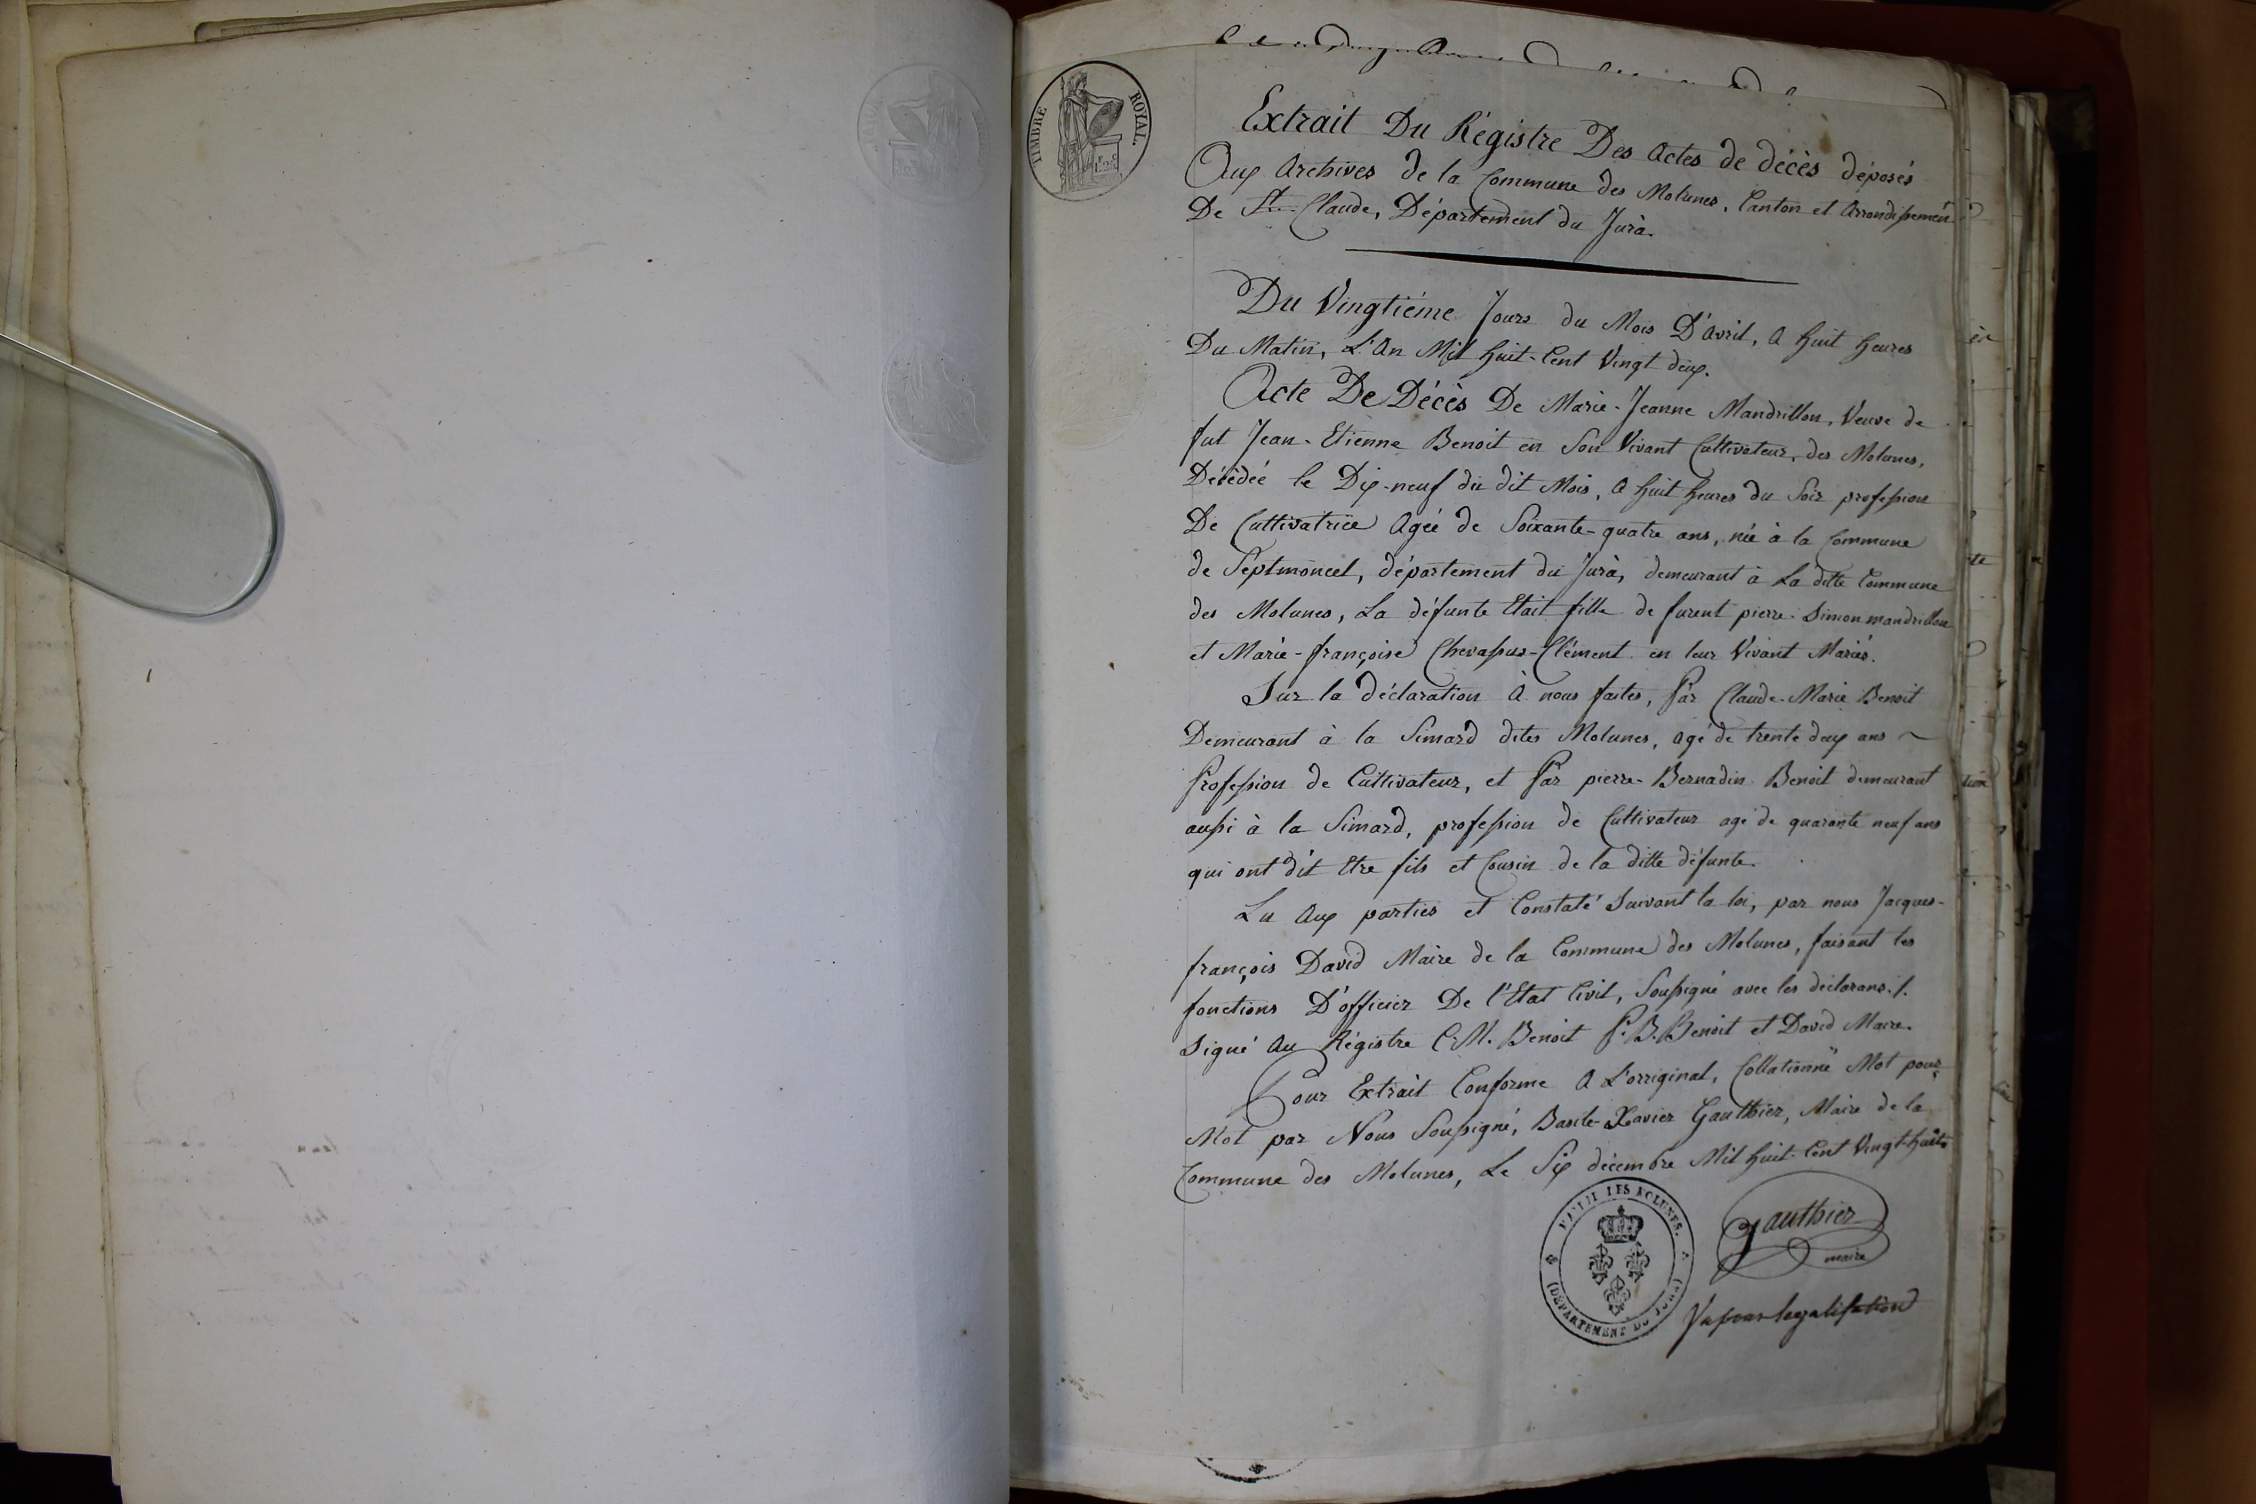 TIMBRE ROYAL.
Extrait Du Régistre Des actes de décès déposés
Aux Archives de la Commune des Molunes, Canton et Arrondissement
De St. Claude, Département du Jura.
Du Vingtiéme Jours du Mois D'avril, a huit heures
Du Matin, L'An Mil huit-Cent Vingt deux.
Acte De Décès De Marie-Jeanne Mandrillon, Veuve de
fut Jean-Etienne Benoit en Son Vivant Cultivateur, des Molunes,
Décédée le Dix-neuf du dit Mois, a huit heures du Soir profession
De Cultivatrice Agée de Soixante-quatre ans, née à la Commune
de Septmoncel, département du Jura, demeurant à La ditte Commune
des Molunes, La défunte Etait fille de furent pierre-Simon mandrillon
et Marie-françoise Chevassus-Clément en leur Vivant Mariés.
Sur la déclaration à nous faites, Par Claude-Marie Benoit
Demeurant à la Simard dites Molunes, agé de trente deux ans
Profession de Cultivateur, et Par pierre-Bernadin Benoit demeurant
aussi à la Simard, profession de Cultivateur agé de quarante neuf ans
qui ont dit Etre fils et Cousin de la ditte défunte.
Lu aux parties et Constaté Suivant la loi, par nous Jacques-
françois David Maire de la Commune des Molunes, faisant les
fonctions D'officier De l'Etat Civil, Soussigné avec les déclarans./.
Signé Au Régistre C.M. Benoit P.B. Benoit et David Maire.
Pour Extrait Conforme A L'orriginal, Collationné Mot pour
Mot par Nous Soussigné, Basile-Xavier Gauthier, Maire de la
Commune des Molunes, Le Six décembre Mil huit-Cent Vingt-huit
MAIRIE LES MOLUNES.
(DÉPARTEMENT DU JURA)
Gauthier
maire
Vu pour legalisation